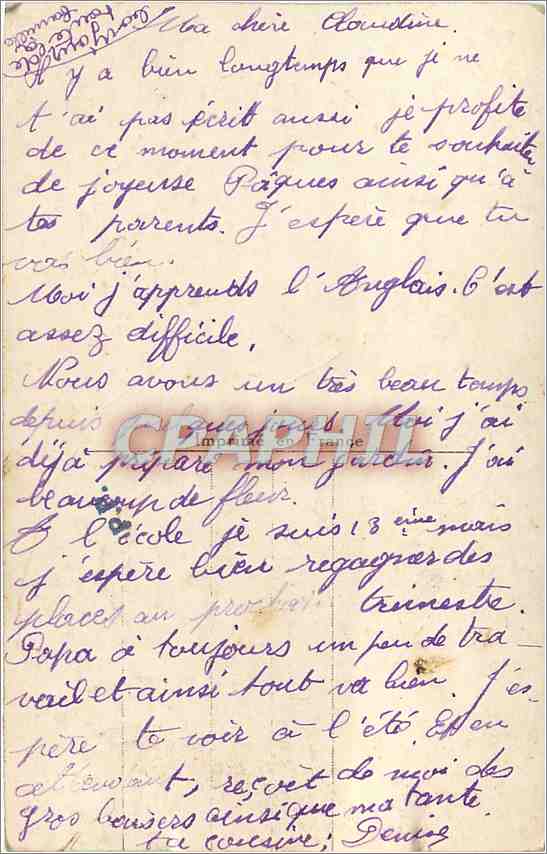 Bonjour de
toute la
famille
Ma chère Claudine.
Il y a bien longtemps que je ne
t'ai pas écrit aussi je profite
de ce moment pour te souhaiter
de joyeuse Pâques ainsi qu'à
tes parents. J'espère que tu
vas bien.
Moi j'apprends l'Anglais. C'est
assez difficile.
Nous avons un très beau temps
depuis quelques jours. Moi j'ai
CPAPHIL
Imprimé en France
déjà préparé mon jardin. J'ai
beaucoup de fleur.
A l'école je suis 13 eime mais
j'espère bien regagner des
places au prochain trimestre.
Papa à toujours un peu de tra-
vail et ainsi tout va bien. J'es-
père te voir à l'été. Et en
attendant, reçoit de moi des
gros baisers ainsi que ma tante.
ta cousine; Denise